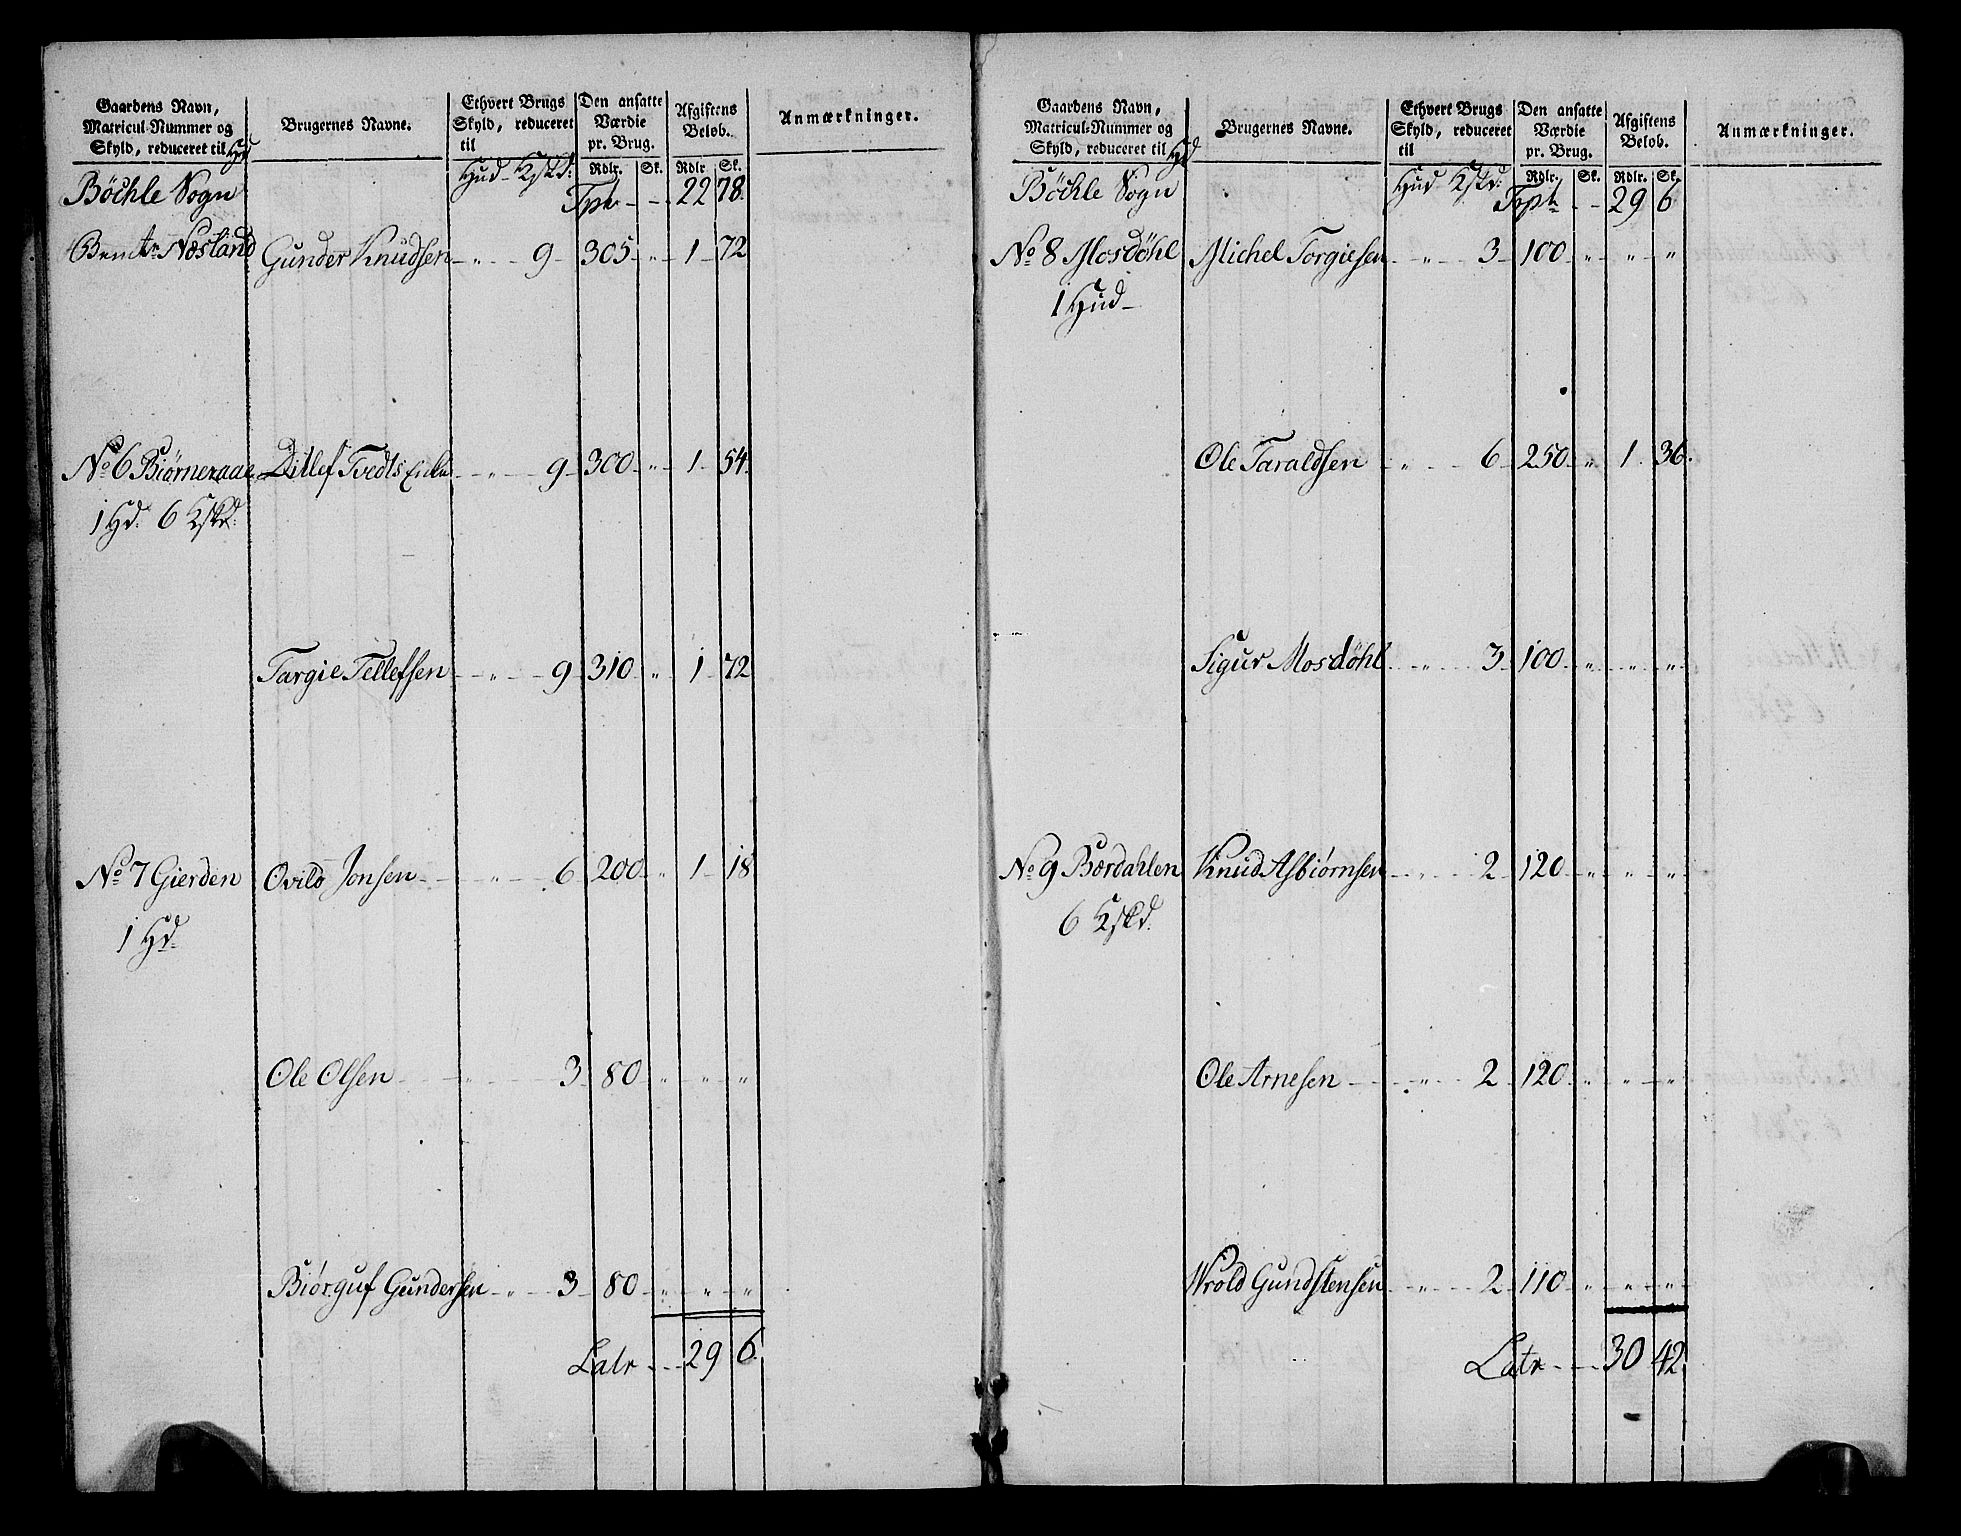 Gaardens Navn, Matricul-Nummer og Skyld, reduceret til Hud | Brugernes Navne. | Ethvert Brugs Skyld, reduceret til Hud Kskd: | Den ansatte Værdie pr. Brug. Rdlr. Sk. | Afgiftens Belob. Rdlr. Sk. | Anmærkninger.
Böchle Sogn Tpt 22 78.
Næsland Gunder Knudsen " 9 305 " 1 72
No 6 Biørneraae Ditlef Tvedts Enke " 9 300 " 1 54.
1 Hd. 6 Kskd:
Targie Tellefsen " 9 310 " 1 72
No 7 Gierden Ovild Jonsen " 6 200 " 1 18
1 Hd.
Ole Olsen " 3 80 " " "
Biørguf Gundersen " 3 80 " " "
Latr 29 6.
Gaardens Navn, Matricul-Nummer og Skyld, reduceret til Hd | Brugernes Navne. | Ethvert Brugs Skyld, reduceret til Hud Kskd: | Den ansatte Værdie pr. Brug. Rdlr. Sk. | Afgiftens Belob. Rdlr. Sk. | Anmærkninger.
Böchle Sogn Tpt 29 6
No 8 Mosdøhl Michel Torgiesen " 3 100 " " "
1 Hud
Ole Taraldsen " 6 250 " 1 36.
Sigur Mosdøhl " 3 100 " " "
No 9 Bordahlen Knud Asbiørnsen " 2 120 " " "
6 Kskd.
Ole Arnesen " 2 120 " " "
Wrold Gundstensen " 2 110 " " "
Latr 30 42.